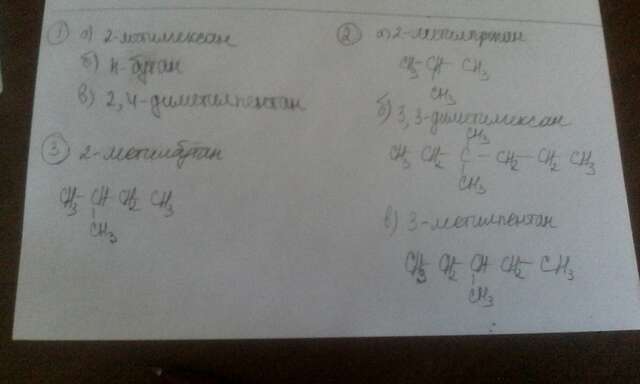 ① а) 2-метилгексан
б) н-бутан
в) 2,4-диметилпентан
③ 2-метилбутан
CH₃-CH-CH₂-CH₃
CH₃
② а) 2-метилпропан
CH₃-CH-CH₃
CH₃
б) 3,3-диметилгексан
CH₃
CH₃-CH₂-C-CH₂-CH₂-CH₃
CH₃
в) 3-метилпентан
CH₃-CH₂-CH-CH₂-CH₃
CH₃